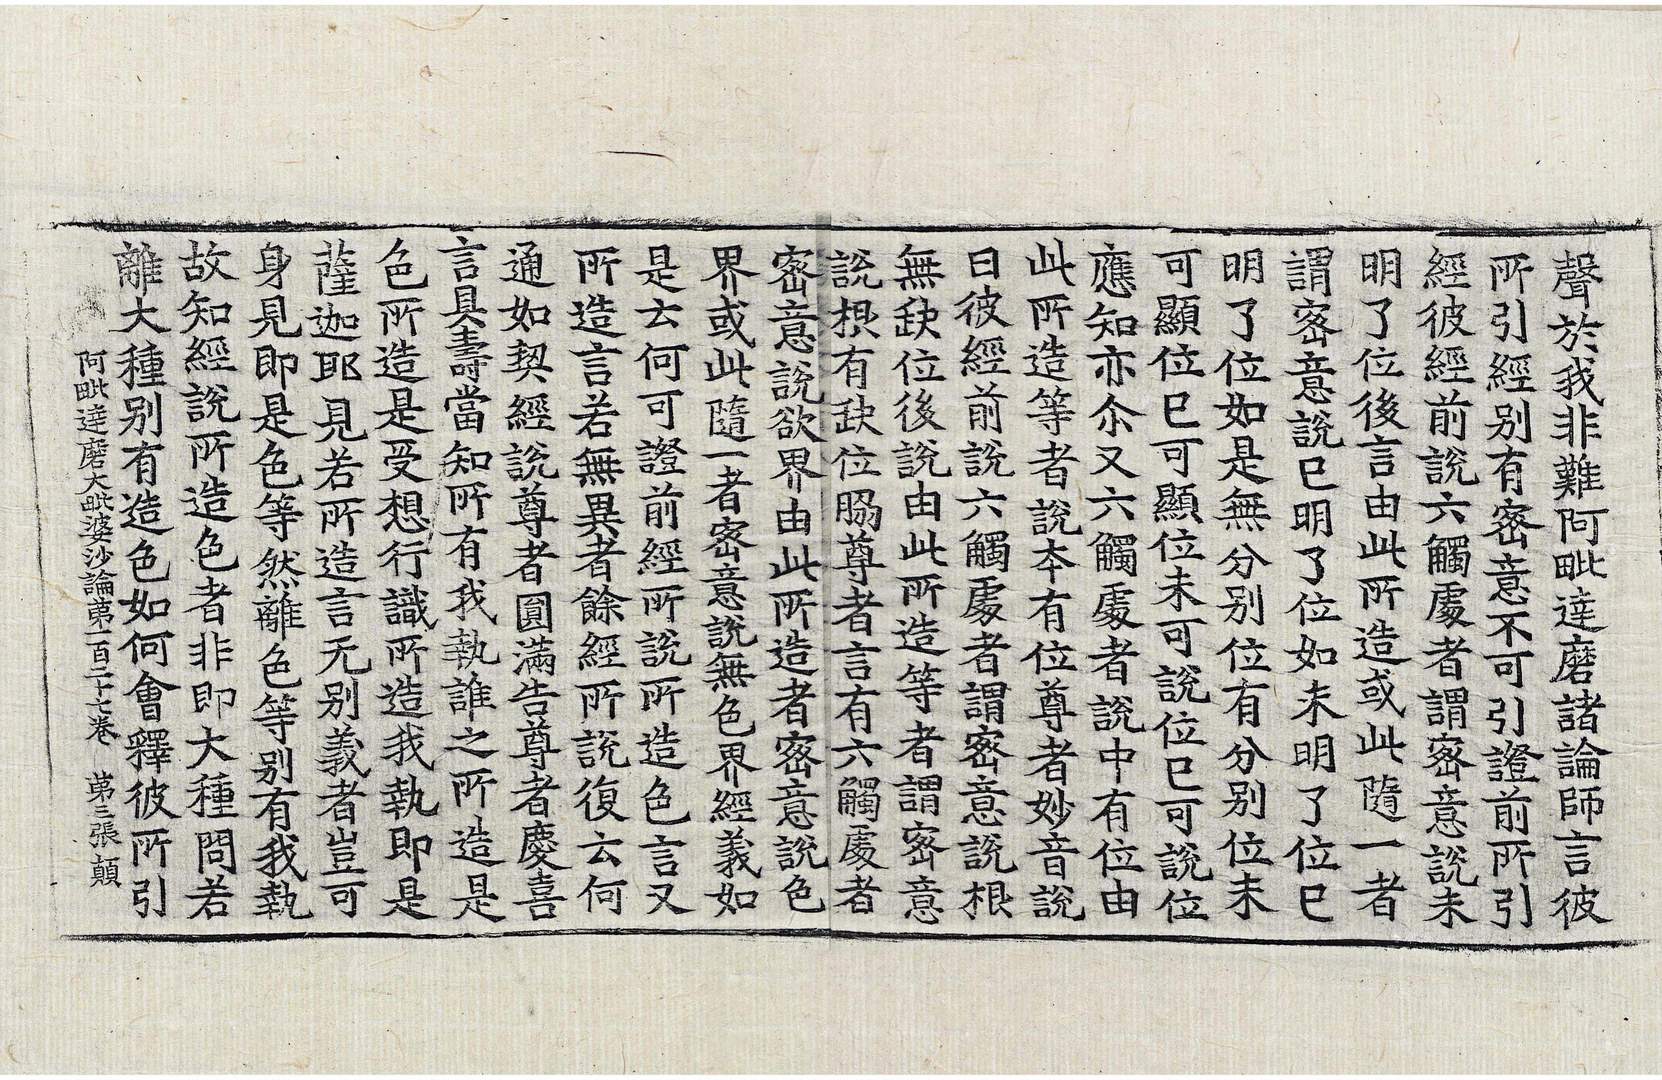 聲於我非難阿毗達磨諸論師言彼
所引經別有密意不可引證前所引
經彼經前說六觸處者謂密意說未
明了位後言由此所造或此隨一者
謂密意說已明了位如未明了位已
明了位如是無分別位有分別位未
可顯位已可顯位未可說位已可說位
應知亦尒又六觸處者說中有位由
此所造等者說本有位尊者妙音說
曰彼經前說六觸處者謂密意說根
無缺位後說由此所造等者謂密意
說根有缺位脇尊者言有六觸處者
密意說欲界由此所造者密意說色
界或此隨一者密意說無色界經義如
是云何可證前經所說所造色言又
所造言若無異者餘經所說復云何
通如契經說尊者圓滿告尊者慶喜
言具壽當知所有我執誰之所造是
色所造是受想行識所造我執即是
薩迦耶見若所造言无別義者豈可
身見即是色等然離色等別有我執
故知經說所造色者非即大種問若
離大種別有造色如何會釋彼所引
阿毗達磨大毗婆沙論第一百二十七卷 第三張 顛